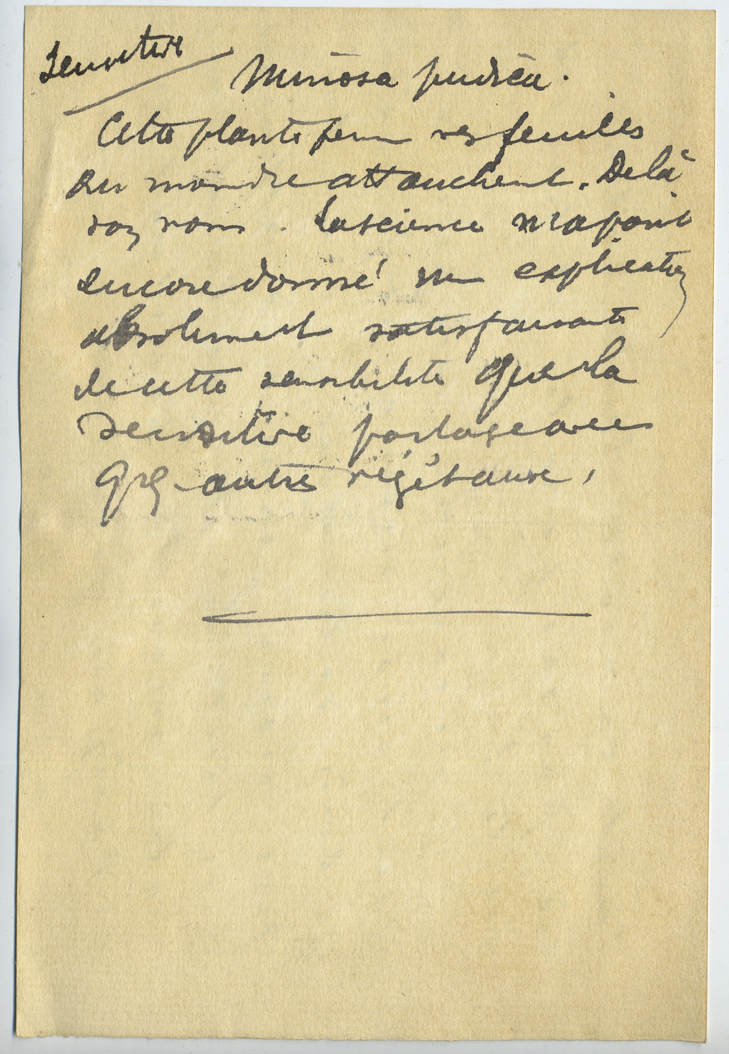 Sensitive
Mimosa pudica.
Cette plante ferme ses feuilles
au moindre attouchement. De là
son nom. La science n'a point
encore donné une explication
absolument satisfaisante
de cette sensibilité que la
sensitive partage avec
qlq. autres végétaux.